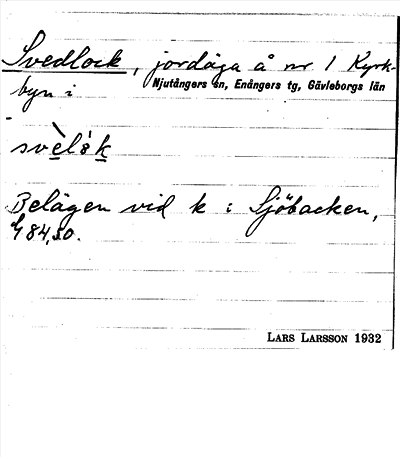 Svedlock, jordäga å nr 1 Kyrk-
byn i Njutångers sn, Enångers tg, Gävleborgs län
svèlåk
Belägen vid k : Sjöbacken,
484,50.
LARS LARSSON 1932